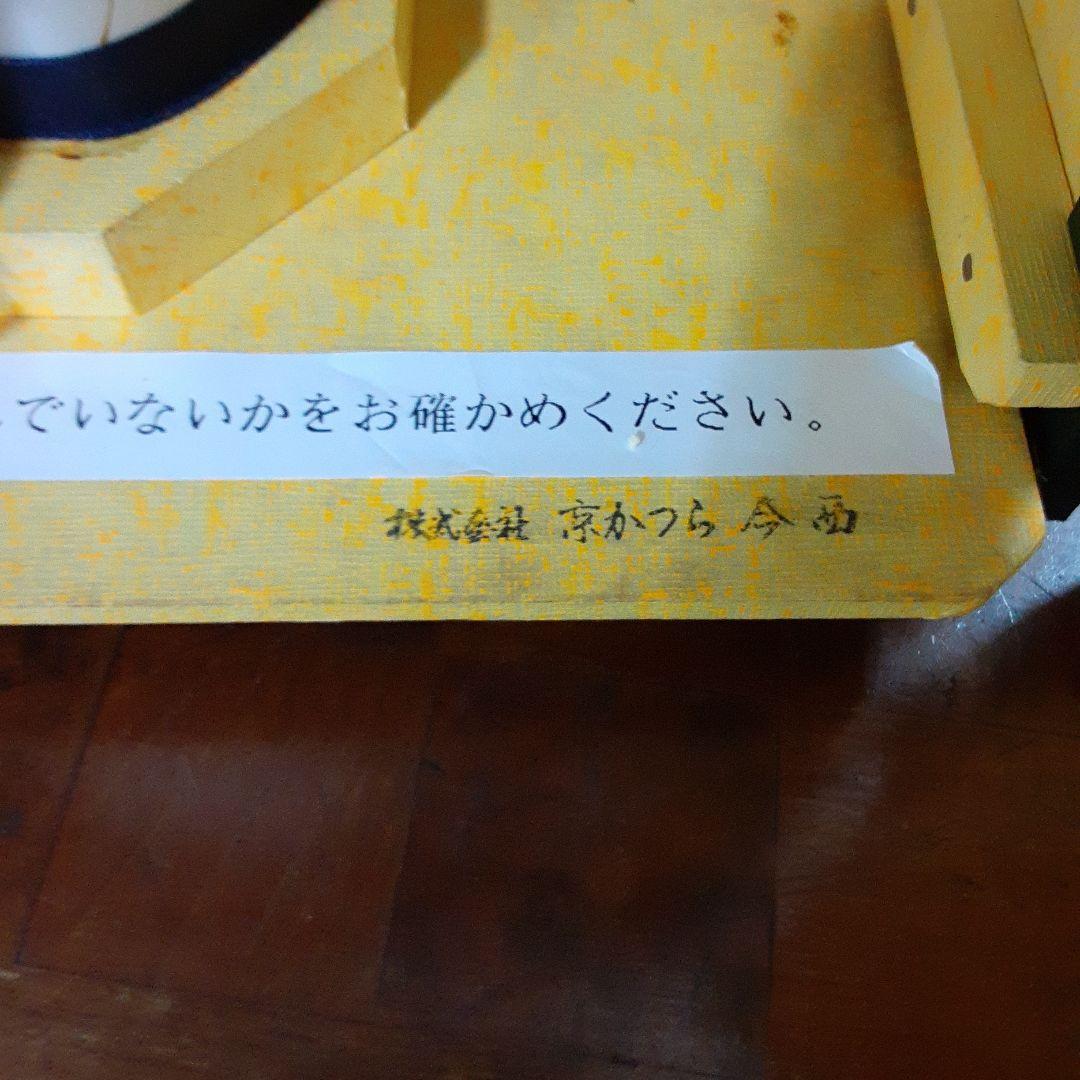 でいないかをお確かめください。
株式会社 京かつら 今西